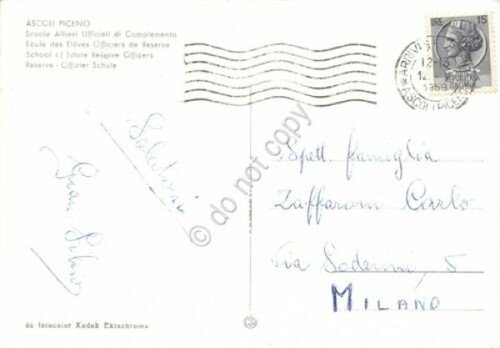 ASCOLI PICENO
Scuola Allievi Ufficiali di Complemento
Ecole des Elèves Officiers de Reserve
School of future Reserve Officers
Reserve - Offizier Schule
LIRE 15
ASCOLI PICENO
Salutoni
Gian Silvio
Spett. famiglia
Zaffaroni Carlo
Via Soderini, 5
MILANO
da fotocolor Kodak Ektachrome
do not copy